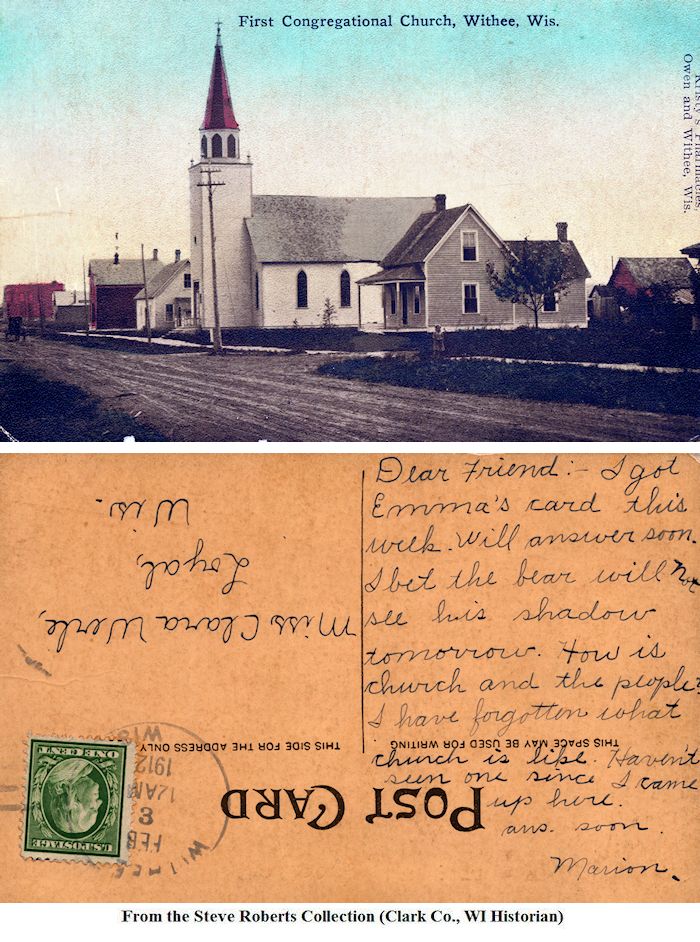 First Congregational Church, Withee, Wis.
Kristy's Pharmacies
Owen and Withee, Wis.
Dear Friend:- I got
Emma's card this
week. Will answer soon.
I bet the bear will not
see his shadow
tomorrow. How is
church and the people?
I have forgotten what
church is like. Haven't
seen one since I came
up here.
ans. soon.
Marion.
Miss Clara Werle,
Loyal,
Wis.
THIS SPACE MAY BE USED FOR WRITING
THIS SIDE FOR THE ADDRESS ONLY
POST CARD
WITHEE
FEB
3
12AM
1912
WIS
U.S. POSTAGE
ONE CENT
From the Steve Roberts Collection (Clark Co., WI Historian)